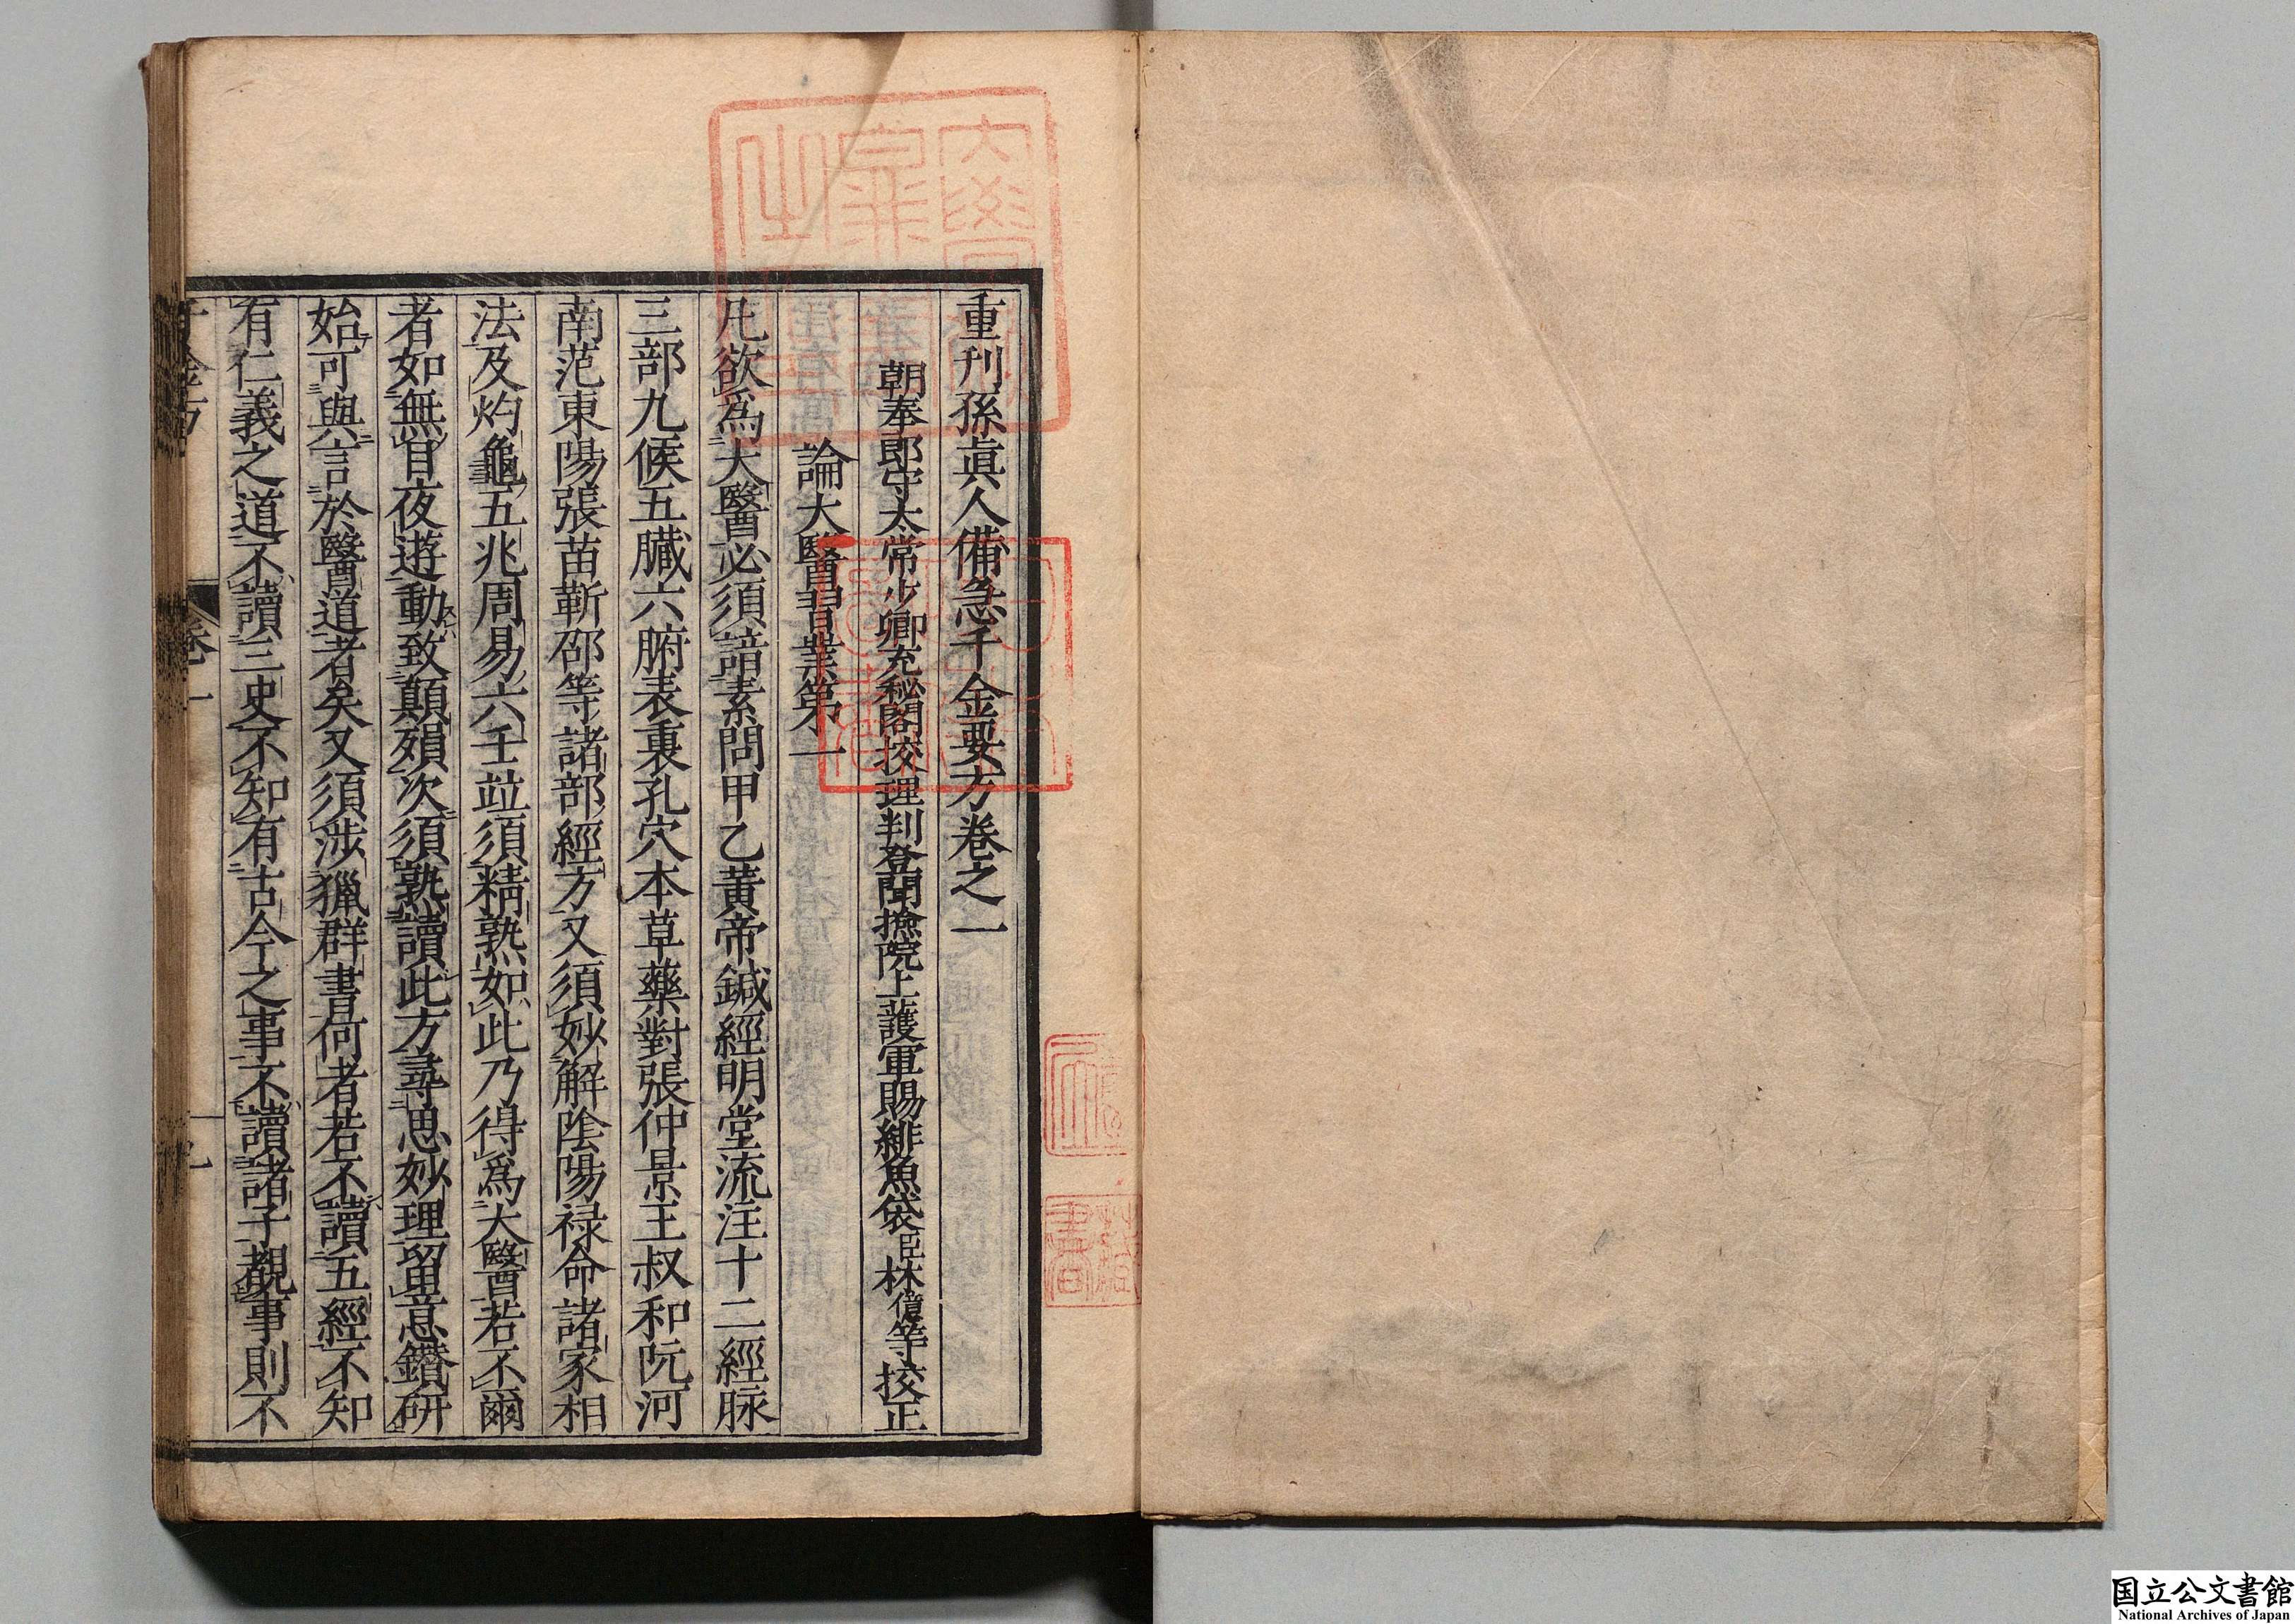 重刊孫眞人備急千金要方卷之一
朝奉郎守太常少卿充秘閣挍理判登聞撿院上護軍賜緋魚袋臣林億等挍正
論大醫習業第一
凡欲爲大醫必須諳素問甲乙黃帝鍼經明堂流注十二經脉
三部九候五臟六腑表裏孔穴本草藥對張仲景王叔和阮河
南范東陽張苗靳邵等諸部經方又須妙解陰陽祿命諸家相
法及灼龜五兆周易六壬竝須精熟如此乃得爲大醫若不爾
者如無目夜遊動致顛殞次須熟讀此方尋思妙理留意鑽研
始可與言於醫道者矣又須涉獵群書何者若不讀五經不知
有仁義之道不讀三史不知有古今之事不讀諸子覩事則不
千金方 卷一
国立公文書館
National Archives of Japan